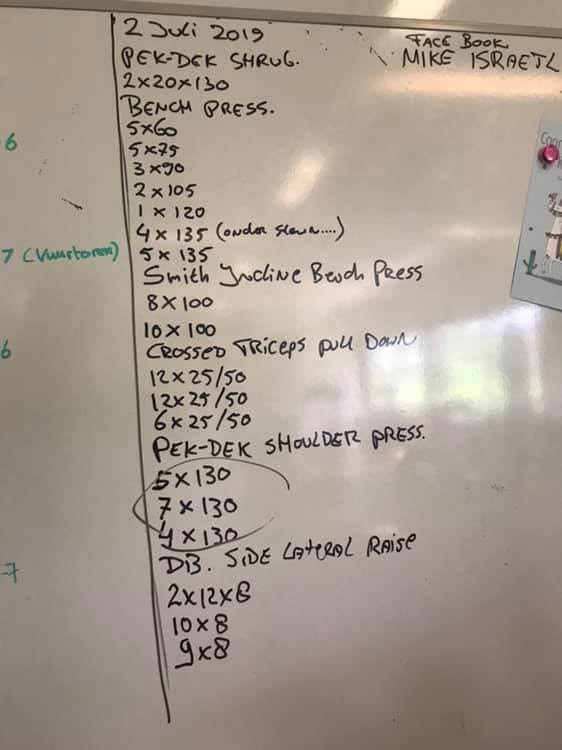 2 Juli 2019
FACE BOOK
MIKE ISRAETL
PEK-DEK SHRUG.
2x20x130
BENCH PRESS.
5x60
6
5x75
3x90
2x105
1x120
4x135 (onder
7 (Vuurtoren)
5x135
Smith Incline Bench Press
8x100
10x100
6
CROSSED TRICEPS PULL DOWN
12x25/50
12x25/50
6x25/50
PEK-DEK SHOULDER PRESS.
5x130
7x130
4x130
DB. SIDE LATERAL RAISE
-7
2x12x8
10x8
9x8